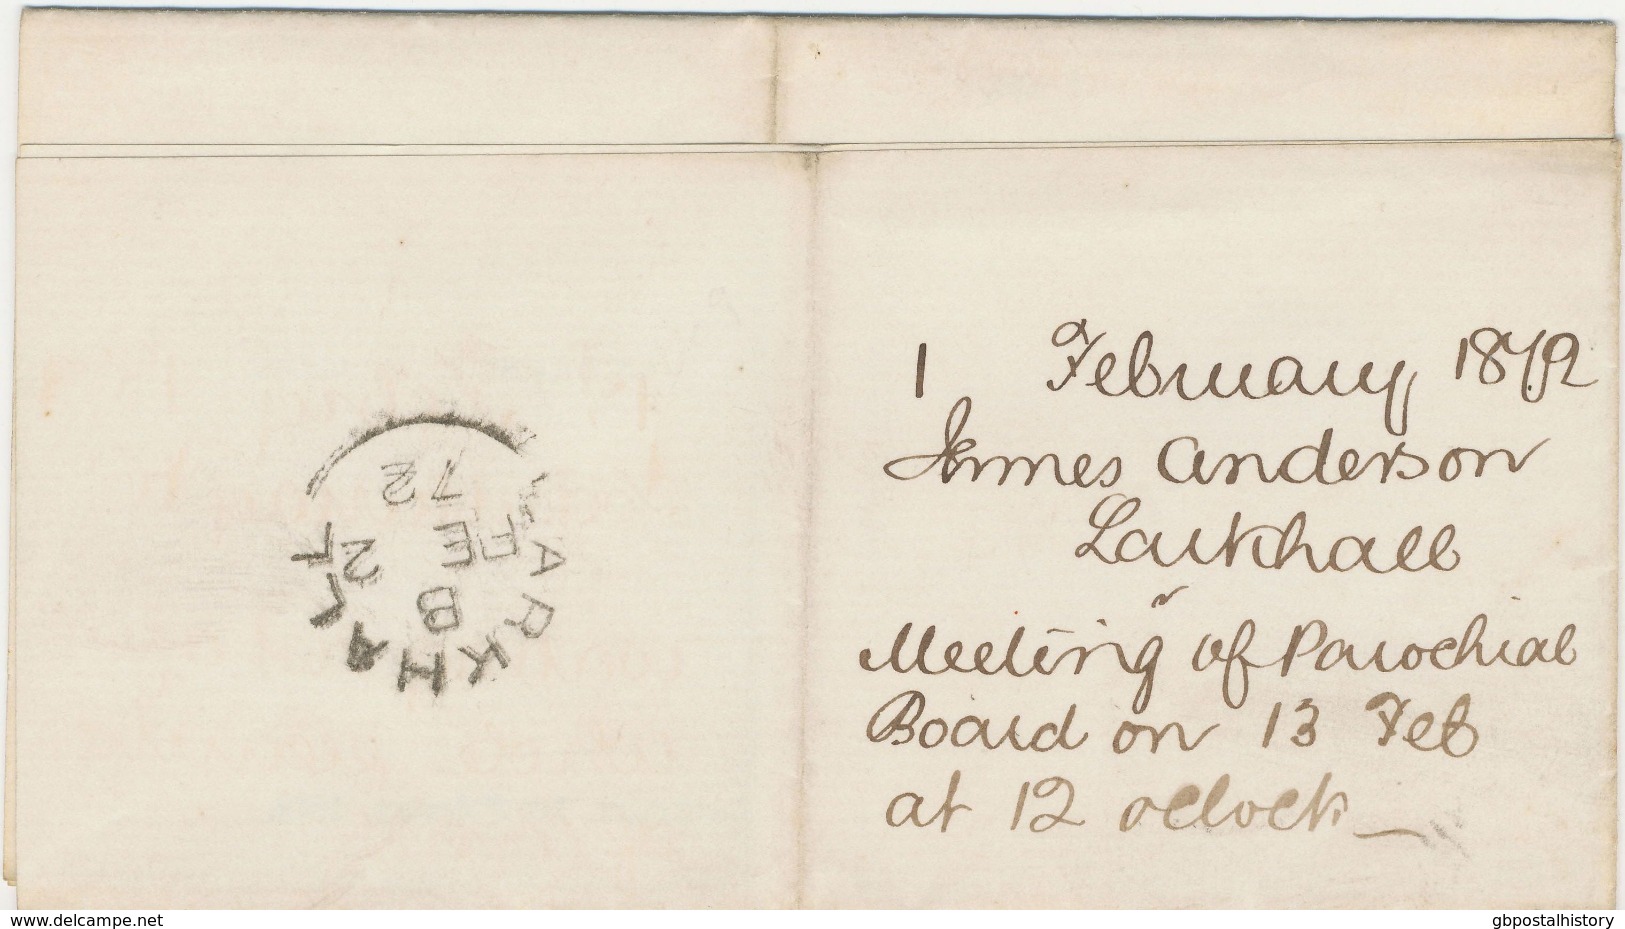 1 February 1872
James Anderson
Larkhall
Meeting of Parochial
Board on 13 Feb
at 12 oclock
LARKHALL
B
FE 2
72
www.delcampe.net
gbpostalhistory